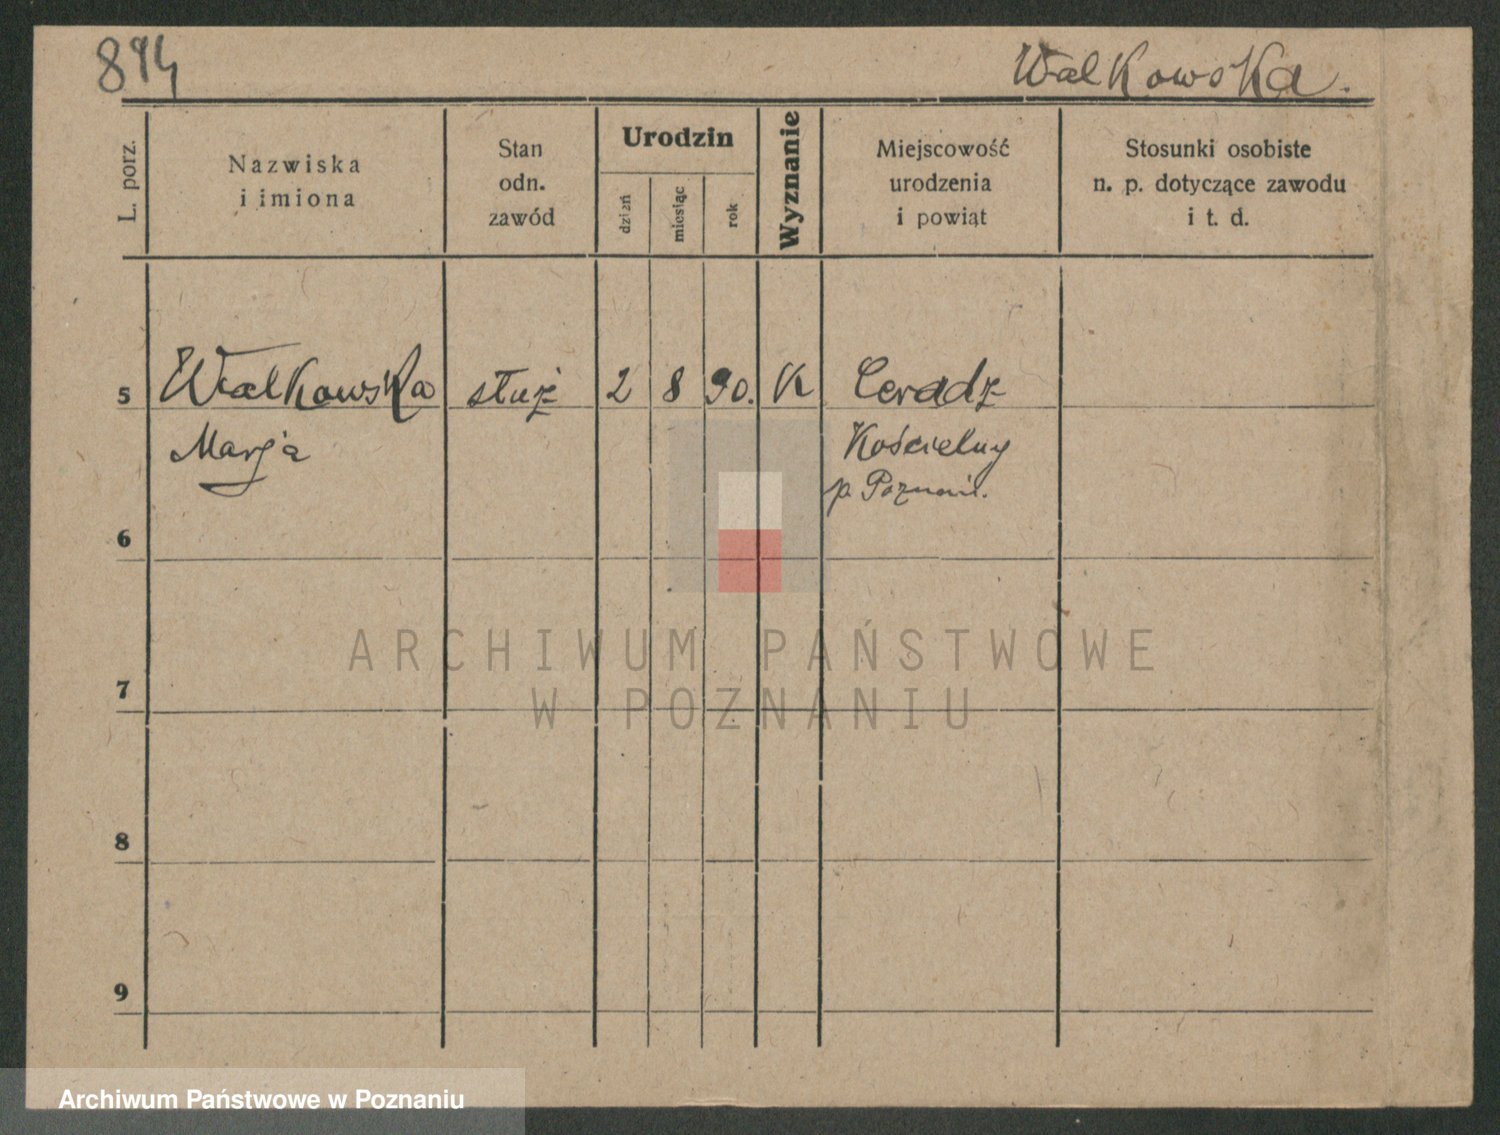 894
Walkowska.
L. porz.
Nazwiska
i imiona
Stan
odn.
zawód
Urodzin
dzień
miesiąc
rok
Wyznanie
Miejscowość
urodzenia
i powiąt
Stosunki osobiste
n. p. dotyczące zawodu
i t. d.
5 Walkowska służ 2 8 90. K Ceradz
Marja Kościelny
p. Poznań.
6
ARCHIWUM PAŃSTWOWE
7
W POZNANIU
8
9
Archiwum Państwowe w Poznaniu